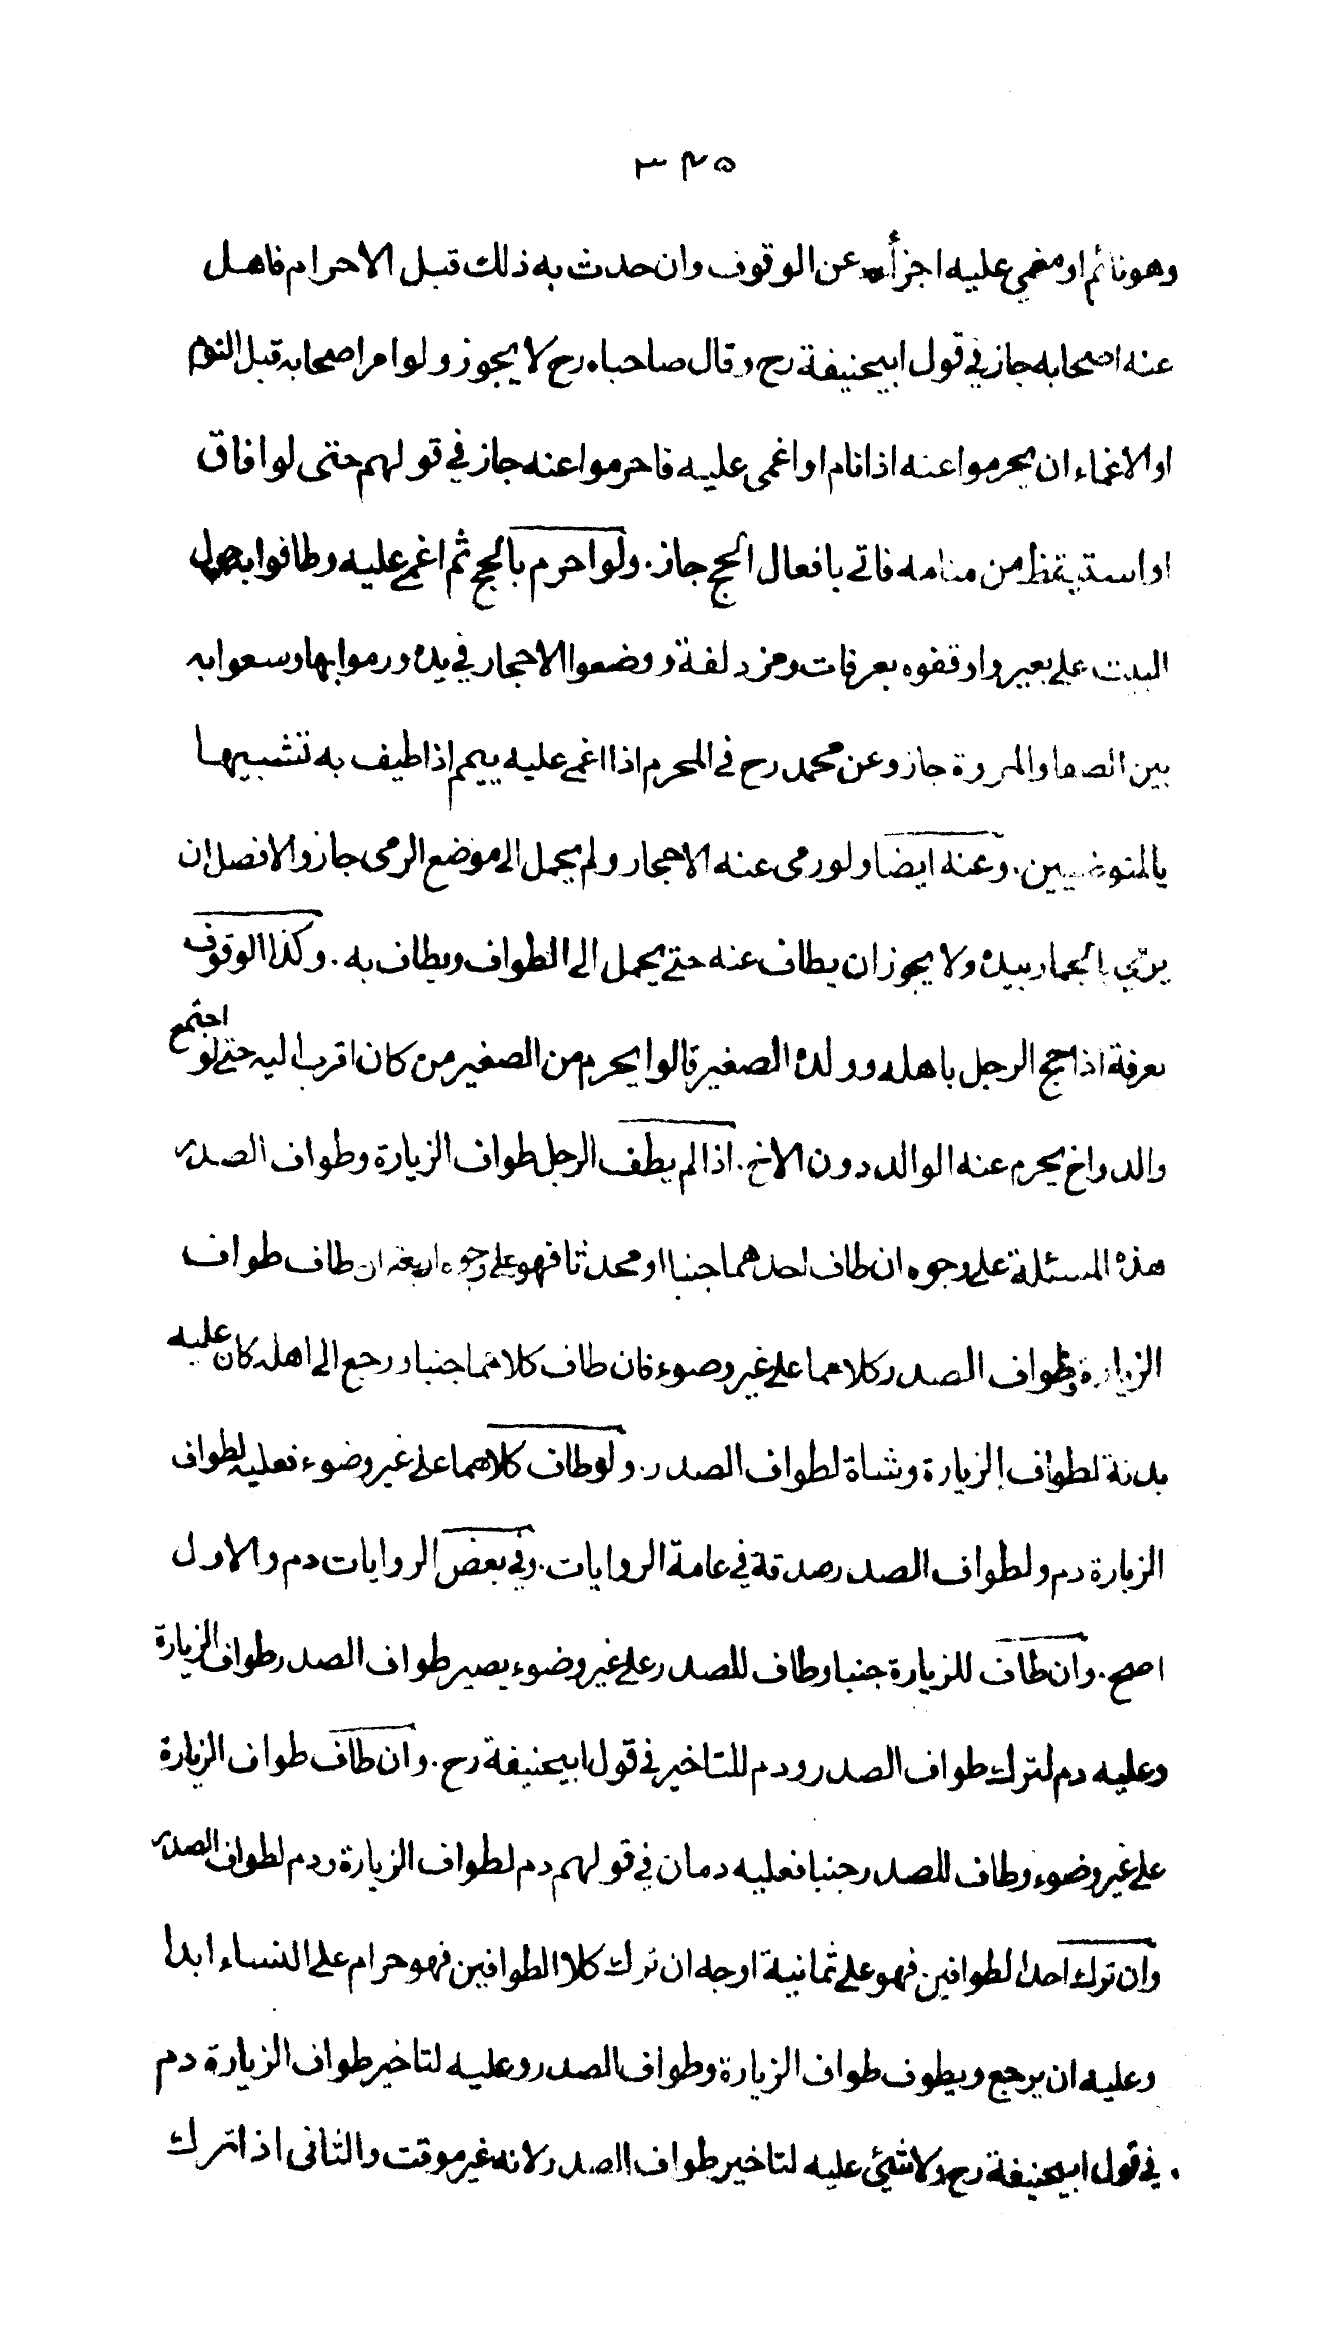 ٣٤٥
وهو نائم او مغمي عليه اجزأه عن الوقوف وان حدث به ذلك قبل الاحرام فاهل
عنه اصحابه جاز في قول ابيحنيفة رح وقال صاحباه رح لا يجوز ولو امر اصحابه قبل النوم
او الاغماء ان يحرموا عنه اذا نام او اغمى عليه فاحرموا عنه جاز في قولهم حتى لو افاق
او استيقظ من منامه فاتى بافعال الحج جاز. ولو احرم بالحج ثم اغمى عليه وطافوا به حول
البيت على بعير واوقفوه بعرفات ومزدلفة ووضعوا الاحجار في يده ورموا بها وسعوا به
بين الصفا والمروة جاز وعن محمد رح في المحرم اذا اغمى عليه ييمم اذا طيف به تشبيها
بالمتوضيين. وعنه ايضا ولو رمى عنه الاحجار ولم يحمل الى موضع الرمى جاز والافضل ان
يرمي بالجمار بيده ولا يجوز ان يطاف عنه حتى يحمل الى الطواف ويطاف به. وكذا الوقوف
بعرفة اذا حج الرجل باهله وولده الصغير قالوا يحرم من الصغير من كان اقرب اليه حتى لو اجتمع
والد واخ يحرم عنه الوالد دون الاخ. اذا لم يطف الرجل طواف الزيارة وطواف الصدر
هذه المسئلة على وجوه ان طاف احدهما جنبا او محدثا فهو على وجوه اربعة ان طاف طواف
الزيارة وطواف الصدر كلاهما على غير وضوء فان طاف كلاهما جنبا ورجع الى اهله كان عليه
بدنة لطواف الزيارة وشاة لطواف الصدر. ولو طاف كلاهما على غير وضوء فعليه لطواف
الزيارة دم ولطواف الصدر صدقة في عامة الروايات. وفي بعض الروايات دم والاول
اصح. وان طاف للزيارة جنبا وطاف للصدر على غير وضوء يصير طواف الصدر طواف الزيارة
وعليه دم لترك طواف الصدر ودم للتاخير في قول ابيحنيفة رح. وان طاف طواف الزيارة
على غير وضوء وطاف للصدر جنبا فعليه دمان في قولهم دم لطواف الزيارة ودم لطواف الصدر
وان ترك احد الطوافين فهو على ثمانية اوجه ان ترك كلا الطوافين فهو حرام على النساء ابدا
وعليه ان يرجع ويطوف طواف الزيارة وطواف الصدر وعليه لتاخير طواف الزيارة دم
في قول ابيحنيفة رح ولا شيئ عليه لتاخير طواف الصدر لانه غير موقت والثانى اذا ترك